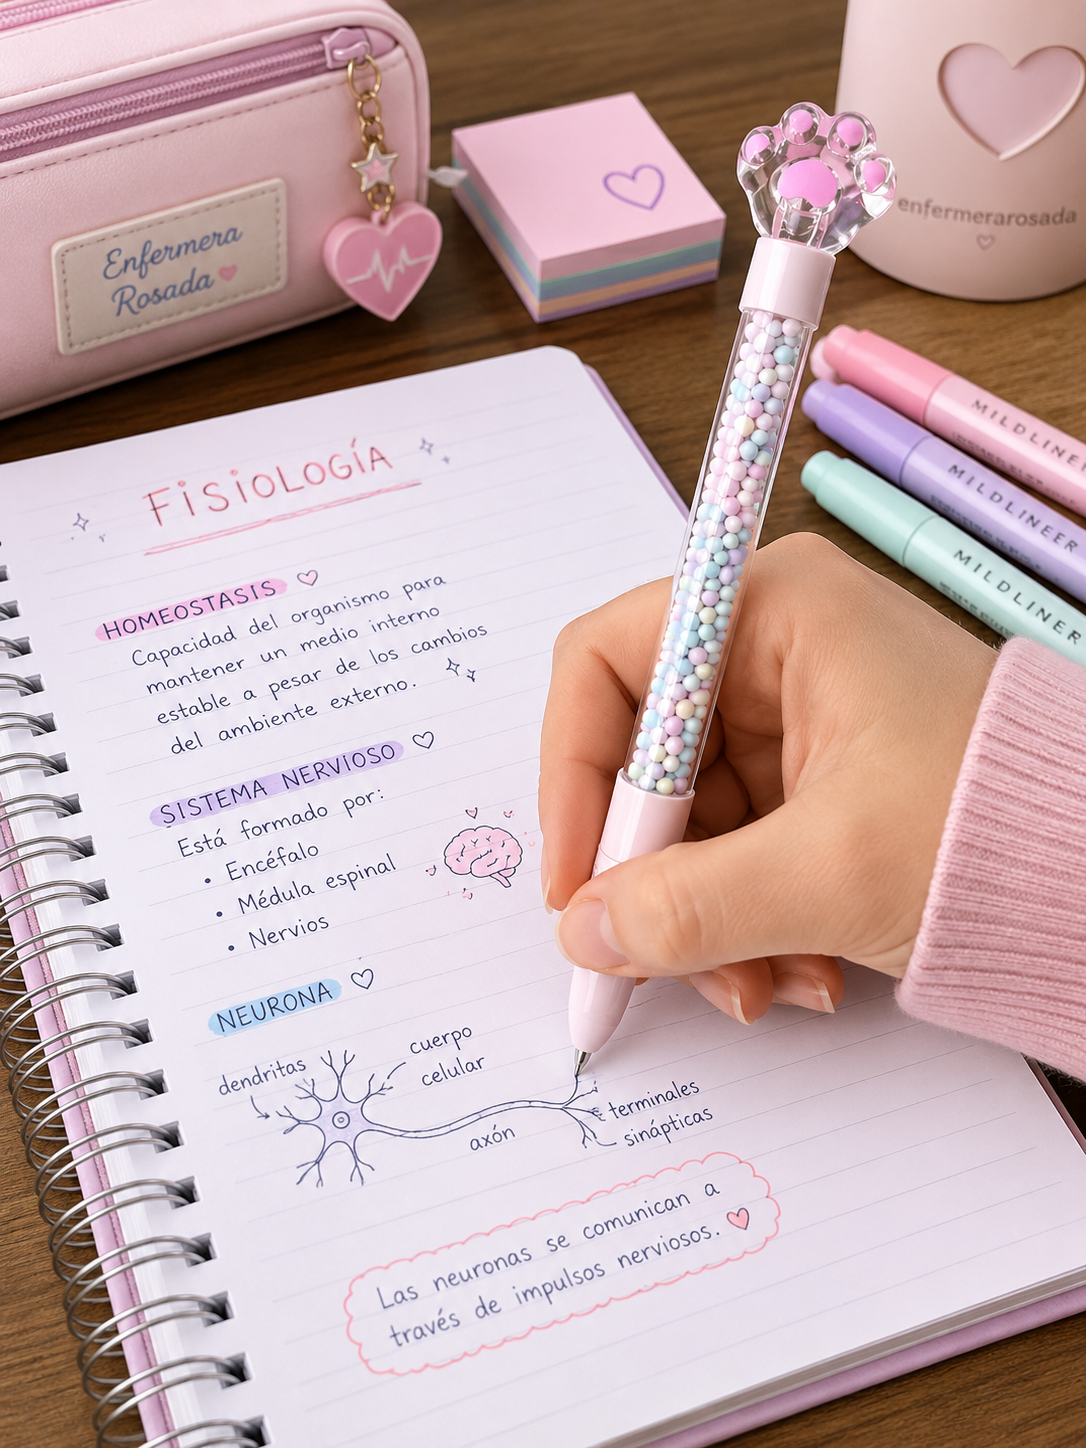 Enfermera
Rosada
enfermerarosada
MILDLINER
MILDLINEER
MILDLINER
FISIOLOGÍA
HOMEOSTASIS
Capacidad del organismo para
mantener un medio interno
estable a pesar de los cambios
del ambiente externo.
SISTEMA NERVIOSO
Está formado por:
• Encéfalo
• Médula espinal
• Nervios
NEURONA
dendritas
cuerpo
celular
axón
terminales
sinápticas
Las neuronas se comunican a
través de impulsos nerviosos.